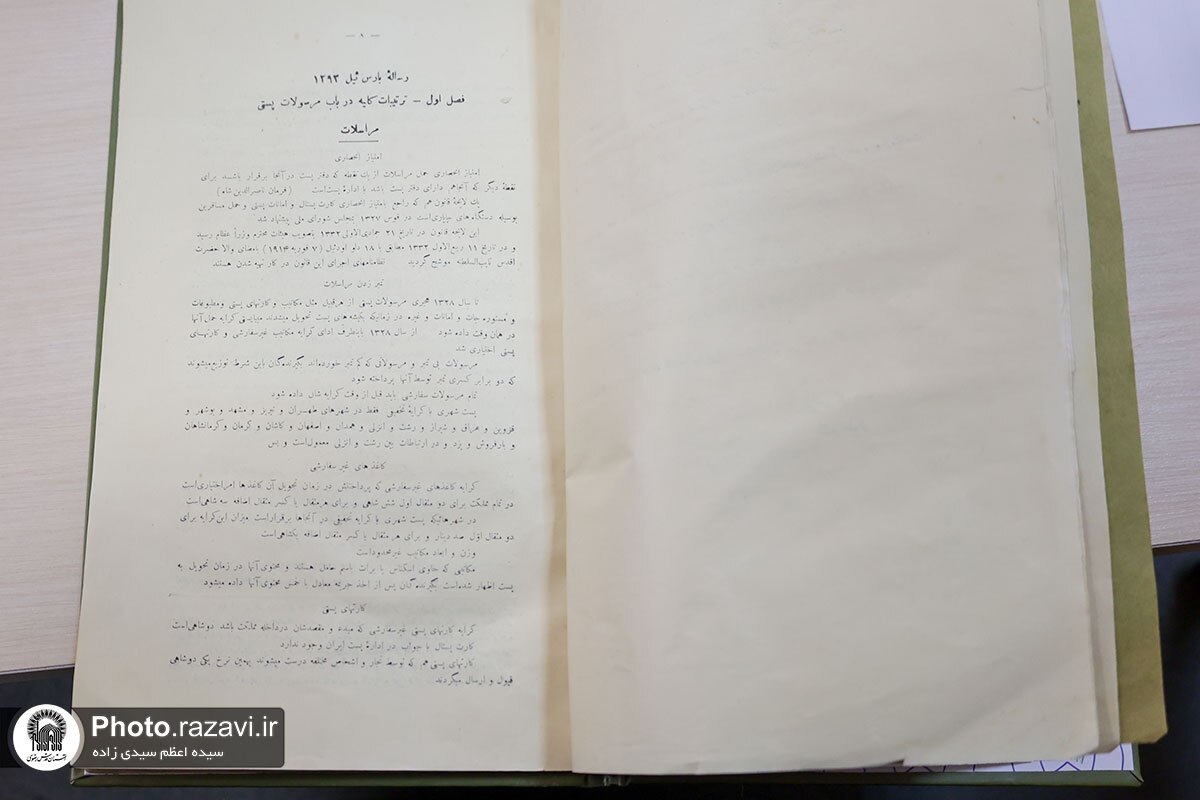 — ۸ —
رسالهٔ بارس ئیل ۱۲۹۳
فصل اول – ترتیبات کلیه در باب مرسولات پستی
مراسلات
امتیاز انحصاری
امتیاز انحصاری حمل مراسلات از یك نقطه که دفتر پست در آنجا برقرار باشد برای
نقطهٔ دیگر که آنجاهم دارای دفتر پست باشد با ادارهٔ پست‌است (فرمان ناصرالدین شاه)
یك لایحهٔ قانون هم که راجع بامتیاز انحصاری کارت پستال و امانات پستی و حمل مسافرین
بوسیله دستگاه های چاپاری‌است در قوس ۱۳۲۷ بمجلس شورای ملی پیشنهاد شد
این لایحه قانون در تاریخ ۲۱ جمادی‌الاولی ۱۳۳۲ بتصویب هیئات محترم وزرأ عظام رسید
و در تاریخ ۱۱ ربیع‌الاول ۱۳۳۲ مطابق با ۱۸ دلو اودئیل (۷ فوریه ۱۹۱۴) بامضای والاحضرت
اقدس نایب‌السلطنه موشح گردید نظامنامهای اجرای این قانون در کار تهیه شدن هستند
تمبر زدن مراسلات
تا سال ۱۳۲۸ هجری مرسولات پستی از هرقبیل مثل مکاتیب و کارتهای پستی و مطبوعات
و مستوره جات و امانات و غیره در زمانیکه بگیشه های پست تحویل میشدند میبایستی کرایه حمل آنها
در همان وقت داده شود از سال ۱۳۲۸ باینطرف ادای کرایه مکاتیب غیرسفارشی و کارتهای
پستی اختیاری شد
مرسولات بی تمبر و مرسولاتی که کم تمبر خورده‌اند بگیرنده‌گان باین شرط توزیع میشوند
که دو برابر کسری تمبر توسط آنها پرداخته شود
تمام مرسولات سفارشی باید قبل از وقت کرایه شان داده شود
پست شهری با کرایهٔ تخفیفی فقط در شهرهای طهران و تبریز و مشهد و بوشهر و
قزوین و عراق و شیراز و رشت و انزلی و همدان و اصفهان و کاشان و کرمان و کرمانشاهان
و بارفروش و یزد و در ارتباطات بین رشت و انزلی معمول‌است و بس
کاغذ های غیر سفارشی
کرایه کاغذهای غیرسفارشی که پرداختنش در زمان تحویل آن کاغذها امر اختیاری‌است
در تمام مملکت برای دو مثقال اول شش شاهی و برای هرمثقال یا کسر مثقال اضافه سه شاهی‌است
در شهرهائیکه پست شهری با کرایه تخفیفی در آنجاها برقراراست میزان این‌کرایه برای
دو مثقال اوّل صد دینار و برای هر مثقال یا کسر مثقال اضافه یکشاهی‌است
وزن و ابعاد مکاتیب غیرمحدوداست
مکاتیبی که حاوی اسکناس یا برات باسم حامل هستند و محتوی آنها در زمان تحویل به
پست اظهار شده‌است بگیرنده‌گان پس از اخذ جریمه معادل با خمس محتوی آنها داده میشود
کارتهای پستی
کرایه کارتهای پستی غیرسفارشی که مبدء و مقصدشان درداخله مملکت باشد دوشاهی‌است
کارت پستال با جواب در ادارهٔ پست ایران وجود ندارد
کارتهای پستی هم که توسط تجار و اشخاص مختلفه درست میشوند بهمین نرخ یکی دوشاهی
قبول و ارسال میگردند
Photo.razavi.ir
سیده اعظم سیدی زاده